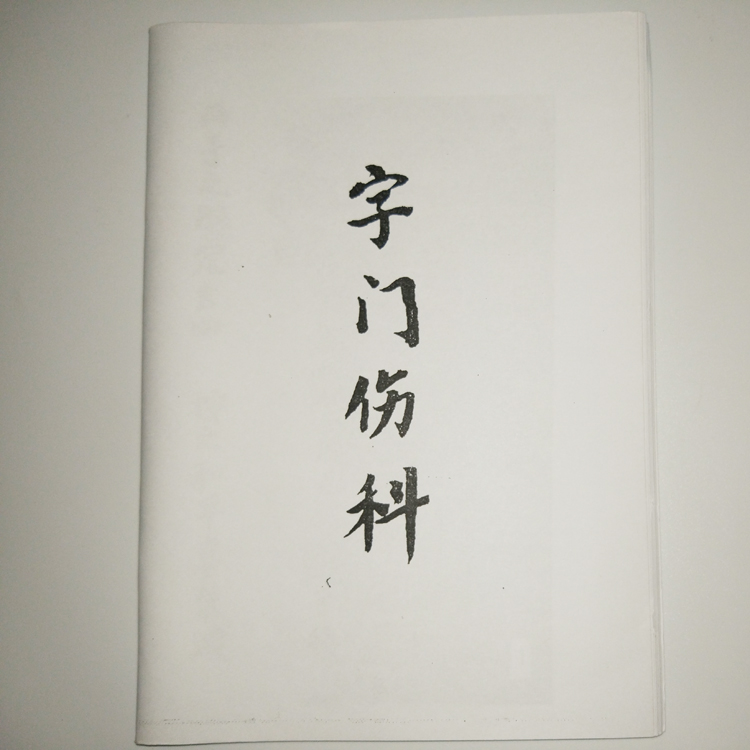 字门伤科